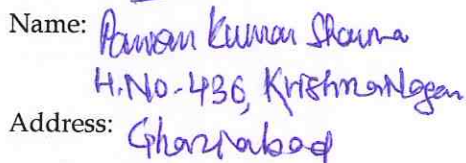 Name: Pawan Kumar Sharma
H.No-436, KrishnaNagar
Address: Ghaziabad